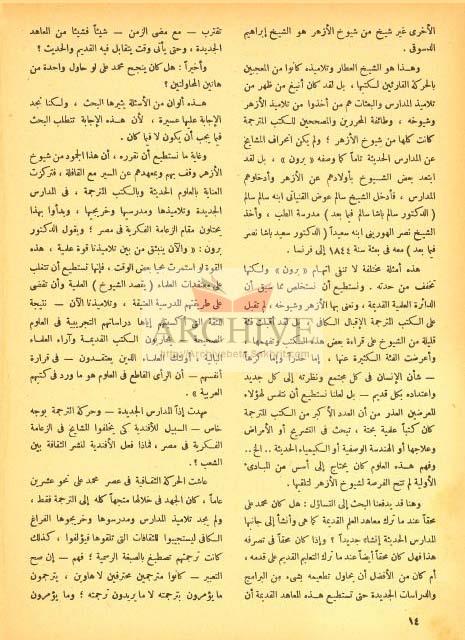 الأخرى غير شيخ من شيوخ الأزهر هو الشيخ إبراهيم
الدسوقى .
وهذا هو الشيخ العطار وتلاميذه كانوا من المعجبين
بالحركة القارئين لكتبها ، بل لقد كان أنبغ من ظهر من
تلاميذ المدارس والبعثات هم من أخذوا من تلاميذ الأزهر
وشيوخه ، وطائفة المحررين والمصححين للكتب المترجمة
كانت كلها من شيوخ الأزهر ؛ ولم يكن انحراف المشايخ
عن المدارس الحديثة تاماً كما وصفه « برون » ، بل لقد
ابتعد بعض الشيوخ بأولادهم عن الأزهر وأدخلوهم
المدارس ، فأدخل الشيخ سالم عوض القنياتى ابنه سالم سالم
( الدكتور سالم باشا سالم فيما بعد ) مدرسة الطب ، وأخذ
الشيخ نصر الهورينى ابنه سعيداً ( الدكتور سعيد باشا نصر
فيما بعد ) معه فى بعثة سنة ١٨٤٤ إلى فرنسا .
هذه أمثلة مختلفة لا تنفى اتهام « برون » ولكنها
تخفف من حدته . ونستطيع أن نستخلص مما سبق أن
الدائرة العلمية القديمة ، ونعنى بها الأزهر وشيوخه ، لم تقبل
على الكتب المترجمة الإقبال الكافى ، وإن قد أقبلت قلة
قليلة من الشيوخ على قراءة بعض هذه الكتب وتفهمها ،
وأعرضت الفئة الكثيرة عنها ، إما حذراً وإما كرهاً
— شأن الإنسان فى كل مجتمع ونظرته إلى كل جديد
واعتداده بكل قديم — بل لعلنا نستطيع أن نتلمس لهؤلاء
المعرضين العذر من أن العدد الأكبر من الكتب المترجمة
كان كتباً علمية بحتة ، تبحث فى التشريح أو الأمراض
وعلاجها أو الهندسة الوصفية أو الكيمياء الحديثة .. الخ ..
وفهم هذه العلوم كان يحتاج إلى أسس من المبادىء
الأولية لم تتح الفرصة لشيوخ الأزهر لتلقيها .
وهنا قد يدفعنا البحث إلى التساؤل : هل كان محمد على
محقاً عند ما ترك معاهد العلم القديمة كما هى وأنشأ إلى جانبها
المدارس الحديثة إنشاء جديداً ؟ وإذا كان محقاً فى تصرفه
هذا فهل كان محقاً أيضاً عند ما ترك التعليم القديم على قدمه ،
أم كان من الأفضل أن يحاول تطعيمه بشىء من البرامج
والدراسات الجديدة حتى تستطيع هذه المعاهد القديمة أن
تقترب — مع مضى الزمن — شيئاً فشيئاً من المعاهد
الجديدة ، وحتى يأتى وقت يتقابل فيه القديم والحديث ؟
وأخيراً : هل كان ينجح محمد على لو حاول واحدة من
هاتين المحاولتين ؟
هذه ألوان من الأسئلة يثيرها البحث ، ولكنا نجد
الإجابة عليها عسيرة ، لأن هذه الإجابة تتطلب البحث
فيما يجب أن يكون لا فيما كان .
وغاية ما نستطيع أن نقرره ، أن هذا الجمود من شيوخ
الأزهر وقف بهم وبمعهدهم عن السير مع القافلة ، فتركزت
العناية بالعلوم الحديثة وبالكتب المترجمة ، فى المدارس
الجديدة وتلاميذها ومدرسيها وخريجيها ، وبدأوا بهذا
يحتلون مقام الزعامة الفكرية فى مصر ؛ ويقول الدكتور
برون : « والآن ينبثق من بين تلاميذنا قوة علمية ، هذه
القوة لو استمرت محيا بعض الوقت ، فإنها تستطيع أن تتغلب
على معتقدات العلماء ( يقصد الشيوخ ) العلمية وأن تقضى
على طريقتهم المدرسية العتيقة ، وتلاميذنا الآن — نتيجة
الثقة التى أكسبتهم إياها دراساتهم التجريبية فى العلوم
الصحيحة — يحتقرون الكتب القديمة وآراء العلماء
البالية ، أولئك العلماء الذين يعتقدون — فى قرارة
أنفسهم — أن الرأى القاطع فى العلوم هو ما ورد فى كتبهم
العربية » .
مهدت إذاً للمدارس الجديدة — وحركة الترجمة بوجه
خاص — السبيل للأفندية كى يخلفوا المشايخ فى الزعامة
الفكرية فى مصر ، فماذا فعل الأفندية لنشر الثقافة بين
الشعب ؟ .
عاشت الحركة الثقافية فى عصر محمد على نحو عشرين
عاماً ، كان الجهد فى خلالها متجهاً كله إلى الترجمة فقط ،
ولم يجد تلاميذ المدارس ومدرسوها وخريجوها الفراغ
الكافى ليستجيبوا للثقافات التى تلقوها فيؤلفوا ، كذلك
كانت ترجمتهم تصطبغ بالصبغة الرسمية ؛ فهم — إن صح
التعبير — كانوا مترجمين محترفين لا هاوين ، يترجمون
ما يؤمرون بترجمته لا ما يريدون ترجمته ؛ وما يؤمرون
١٤
ARCHIVE